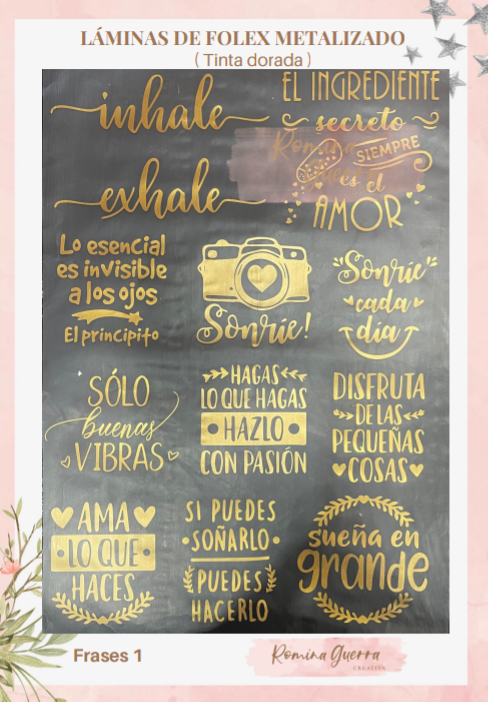 LÁMINAS DE FOLEX METALIZADO
( Tinta dorada )
inhale
exhale
EL INGREDIENTE
secreto
SIEMPRE
es el
AMOR
Lo esencial
es invisible
a los ojos
El principito
Sonríe!
Sonríe
cada
día
SÓLO
buenas
VIBRAS
HAGAS
LO QUE HAGAS
HAZLO
CON PASIÓN
DISFRUTA
DE LAS
PEQUEÑAS
COSAS
AMA
LO QUE
HACES
SI PUEDES
SOÑARLO
PUEDES
HACERLO
sueña en
grande
Frases 1
Romina Guerra
CREATIVA